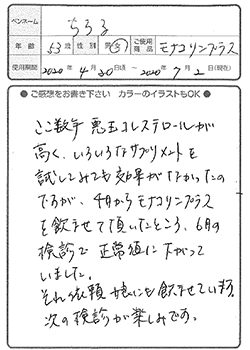 ペンネーム ちろる
年齢 53歳 性別 男・女 ご使用商品 モナコリンプラス
使用期間 2020年4月30日頃 ～ 2020年7月2日(現在)
● ご感想をお書き下さい カラーのイラストもOK ●
ここ数年 悪玉コレステロールが
高く、いろいろなサプリメントを
試してみても効果がなかったの
ですが、4月からモナコリンプラス
を飲ませて頂いたところ、6月の
検診で 正常値に下がって
いました。
それ依頼 娘にも飲ませています。
次の検診が楽しみです。